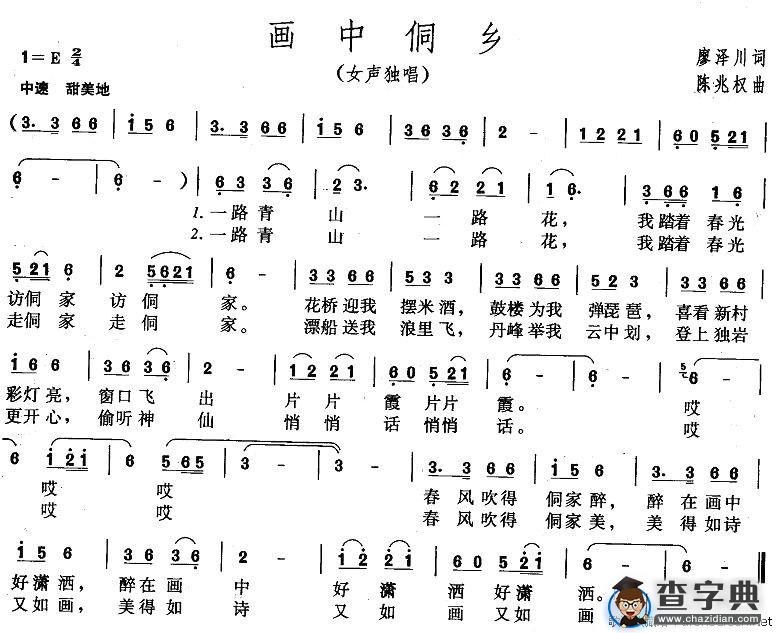 画中侗乡
1=E 2/4
（女声独唱）
廖泽川 词
陈兆权 曲
中速 甜美地
(3. 3 6 6 | i 5 6 | 3. 3 6 6 | i 5 6 | 3 6 3 6 | 2 - | 1 2 2 1 | 6 0 5 2 1 |
6 - | 6 - ) | 6 3 3 6 | 2 3. | 6 2 2 1 | 1 6. | 3 6 6 1 6 |
1.一路青 山 一 路 花， 我踏着 春光
2.一路青 山 一 路 花， 我踏着 春光
5 2 1 6 | 2 5 6 2 1 | 6 - | 3 3 6 6 | 5 3 3 | 3 3 6 6 | 5 2 3 | 3 3 6 6 |
访侗 家 访 侗 家。 花桥迎我 摆米酒， 鼓楼为我 弹琵琶， 喜看新村
走侗 家 走 侗 家。 漂船送我 浪里飞， 丹峰举我 云中划， 登上独岩
i 6 6 | 3 6 3 6 | 2 - | 1 2 2 1 | 6 0 5 2 1 | 6 - | 6 - | 5 6 - |
彩灯亮， 窗口飞 出 片 片 霞 片片 霞。 哎
更开心， 偷听神 仙 悄 悄 话 悄悄 话。 哎
6 i 2 i | 6 5 6 5 | 3 - | 3 - | 3. 3 6 6 | i 5 6 | 3. 3 6 6 |
哎 哎 春 风吹得 侗家醉， 醉 在画中
哎 哎 春 风吹得 侗家美， 美 得如诗
i 5 6 | 3 6 3 6 | 2 - | i 2 2 i | 6 0 5 2 i | 6 - | 6 - ‖
好潇洒， 醉在画 中 好 潇 洒 好潇 洒。
又如画， 美得如 诗 又 如 画 又如 画
查字典
www.chazidian.com